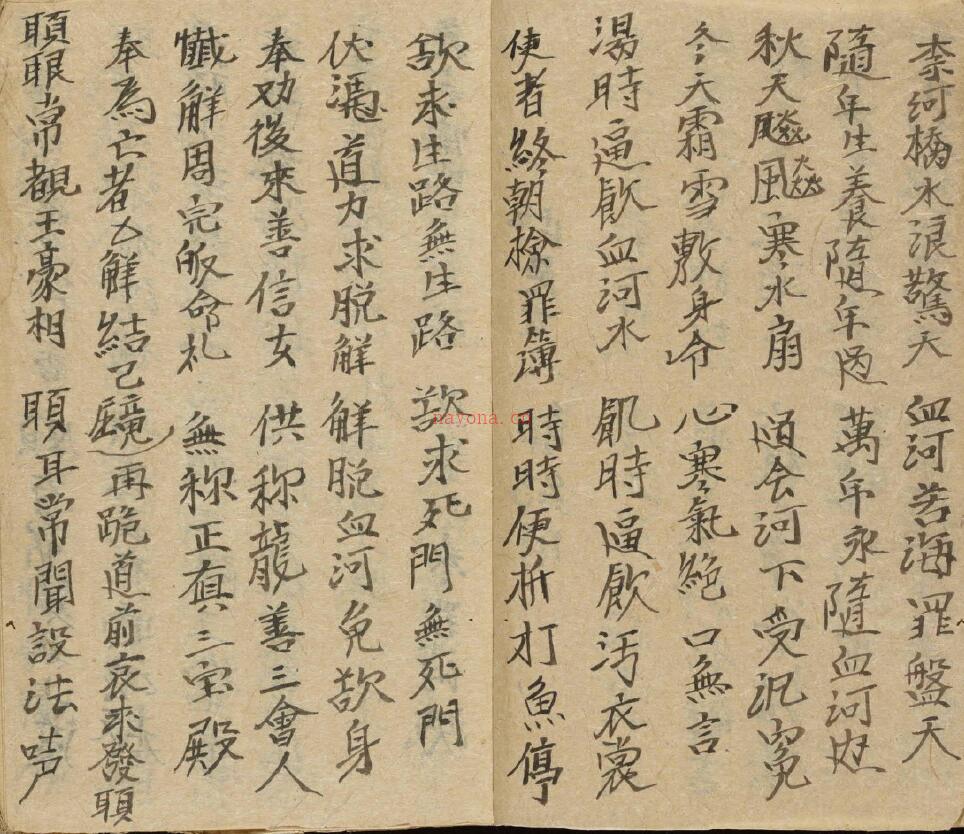 柰河橋水浪驚天 血河苦海罪盤天
隨年生養隨年 萬年永隨血河
秋天飈風寒水扇 河下受
冬天霜雪敷身冷 心寒氣絕口無言
湯時逼飲血河水 飢時逼飲污衣裳
使者終朝撿罪簿 時時便折打魚停
欲求生路無生路 欲求死門無死門
伏慿道力求脱觧 觧脱血河免欲身
奉劝後來善信女 供称龍善三會人
懺觧周完皈命礼 無称正真三宝殿
奉為亡者觧結已 再跪道前哀求發願
願眼常觀玉豪相 願耳常聞設法声
nayona.cn